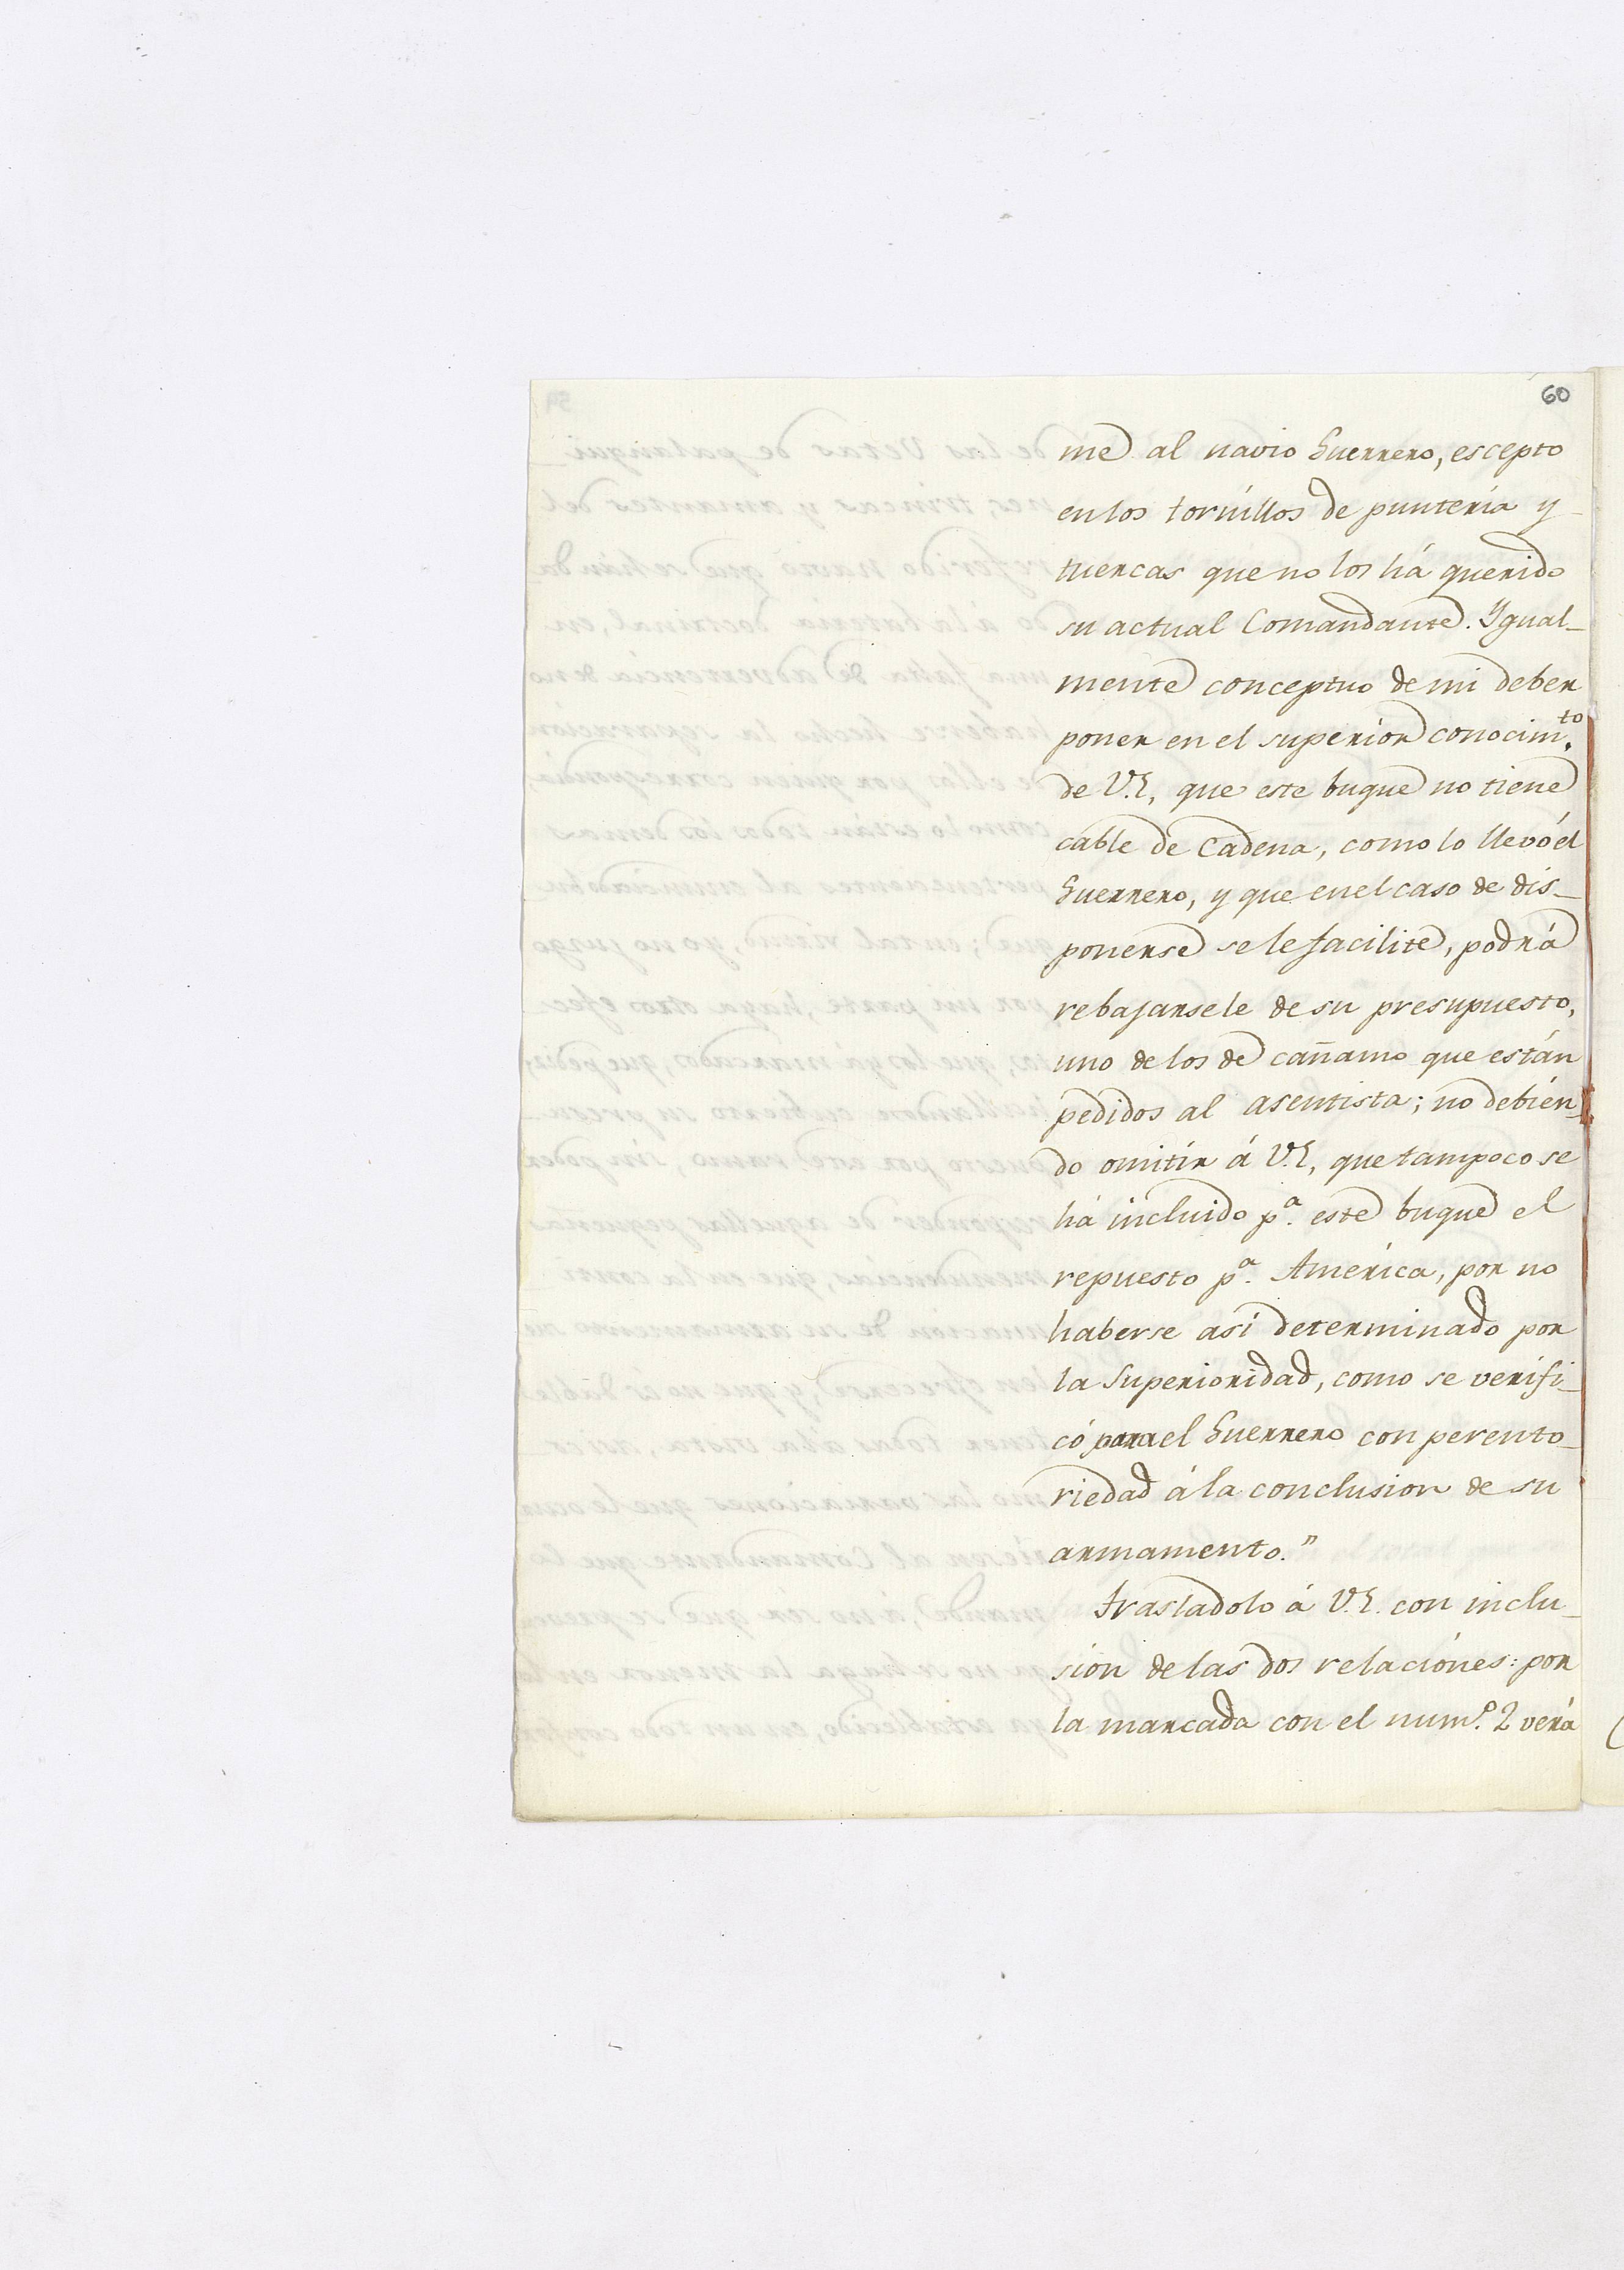 60
me al navio Guerrero, escepto
en los tornillos de punteria y
tuercas que no los há querido
su actual Comandante. Ygual_
mente conceptuo de mi deber
poner en el superior conocim.to
de V.E, que este buque no tiene
cable de Cadena, como lo llevó el
Guerrero, y que en el caso de dis_
ponerse se le facilite, podrá
rebajarsele de su presupuesto,
uno de los de cañamo que están
pedidos al asentista; no debién_
do omitir á V.E, que tampoco se
há incluido p.a este buque el
repuesto p.a América, por no
haberse asi determinado por
la Superioridad, como se verifi_
có para el Guerrero con perento_
riedad á la conclusion de su
armamento."
Trasladolo á V.E. con inclu_
sión de las dos relaciónes: por
la marcada con el num.o 2 verá